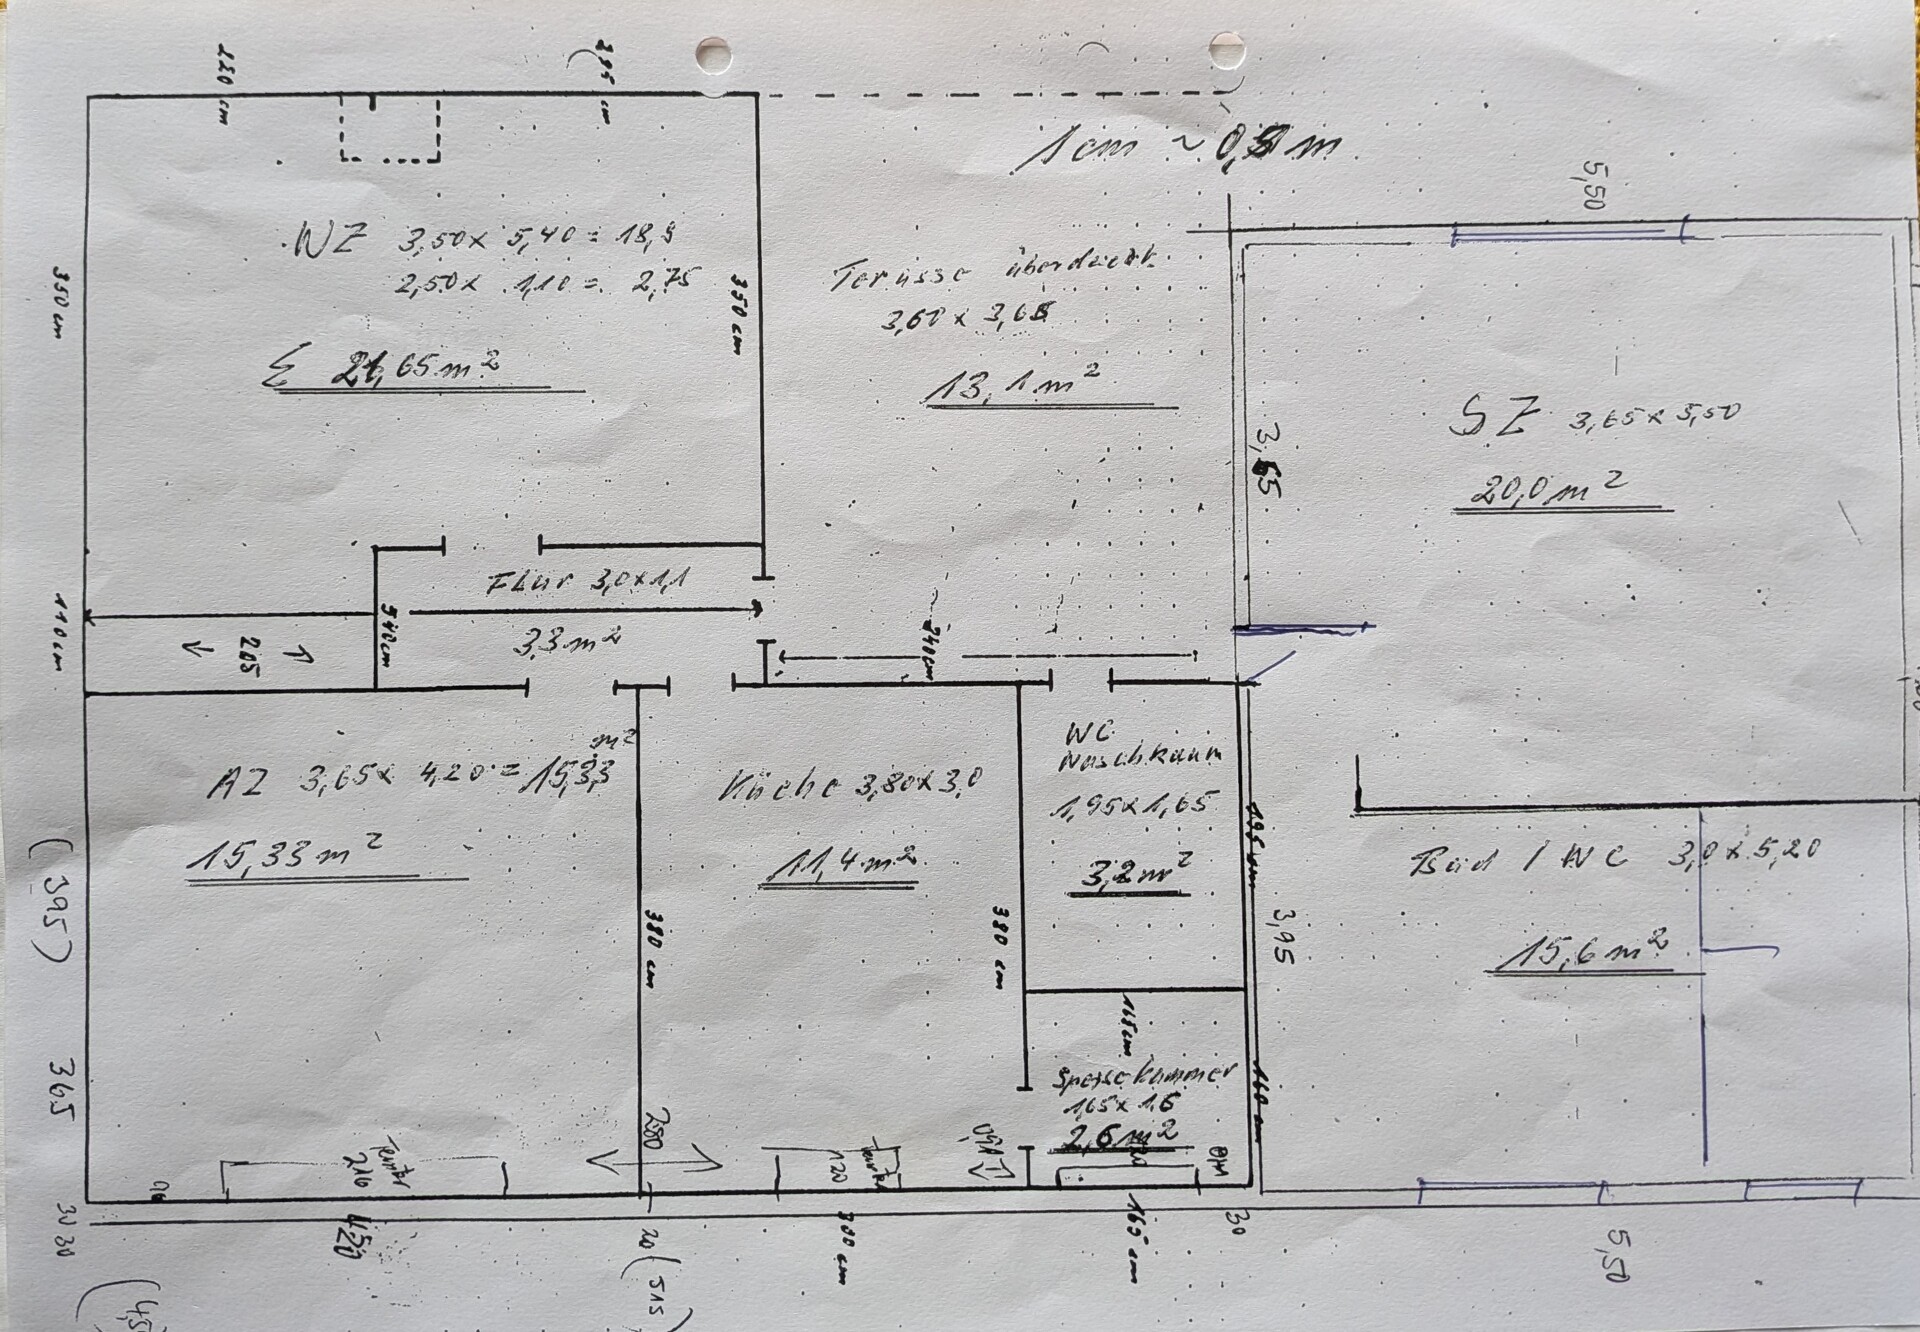 220 cm
395 cm
1 cm ~ 0,5 m
5,50
WZ 3,50 x 5,40 = 18,9
2,50 x 1,10 = 2,75
Σ 21,65 m²
350 cm
350 cm
Terasse überdacht
3,60 x 3,65
13,1 m²
3,65
SZ 3,65 x 5,50
20,0 m²
Flur 3,0 x 1,1
3,3 m²
110 cm
205
540 cm
340 cm
AZ 3,65 x 4,20 = 15,33 m²
15,33 m²
Küche 3,80 x 3,0
11,4 m²
WC
Waschraum
1,95 x 1,65
3,2 m²
195 cm
Bad / WC 3,0 x 5,20
15,6 m²
(395)
380 cm
380 cm
3,95
165 cm
Speisekammer
1,65 x 1,6
2,6 m²
160 cm
365
280
Fenster
210
120
Fenster
30 30
420
20 (515)
300 cm
165 cm
30
5,50